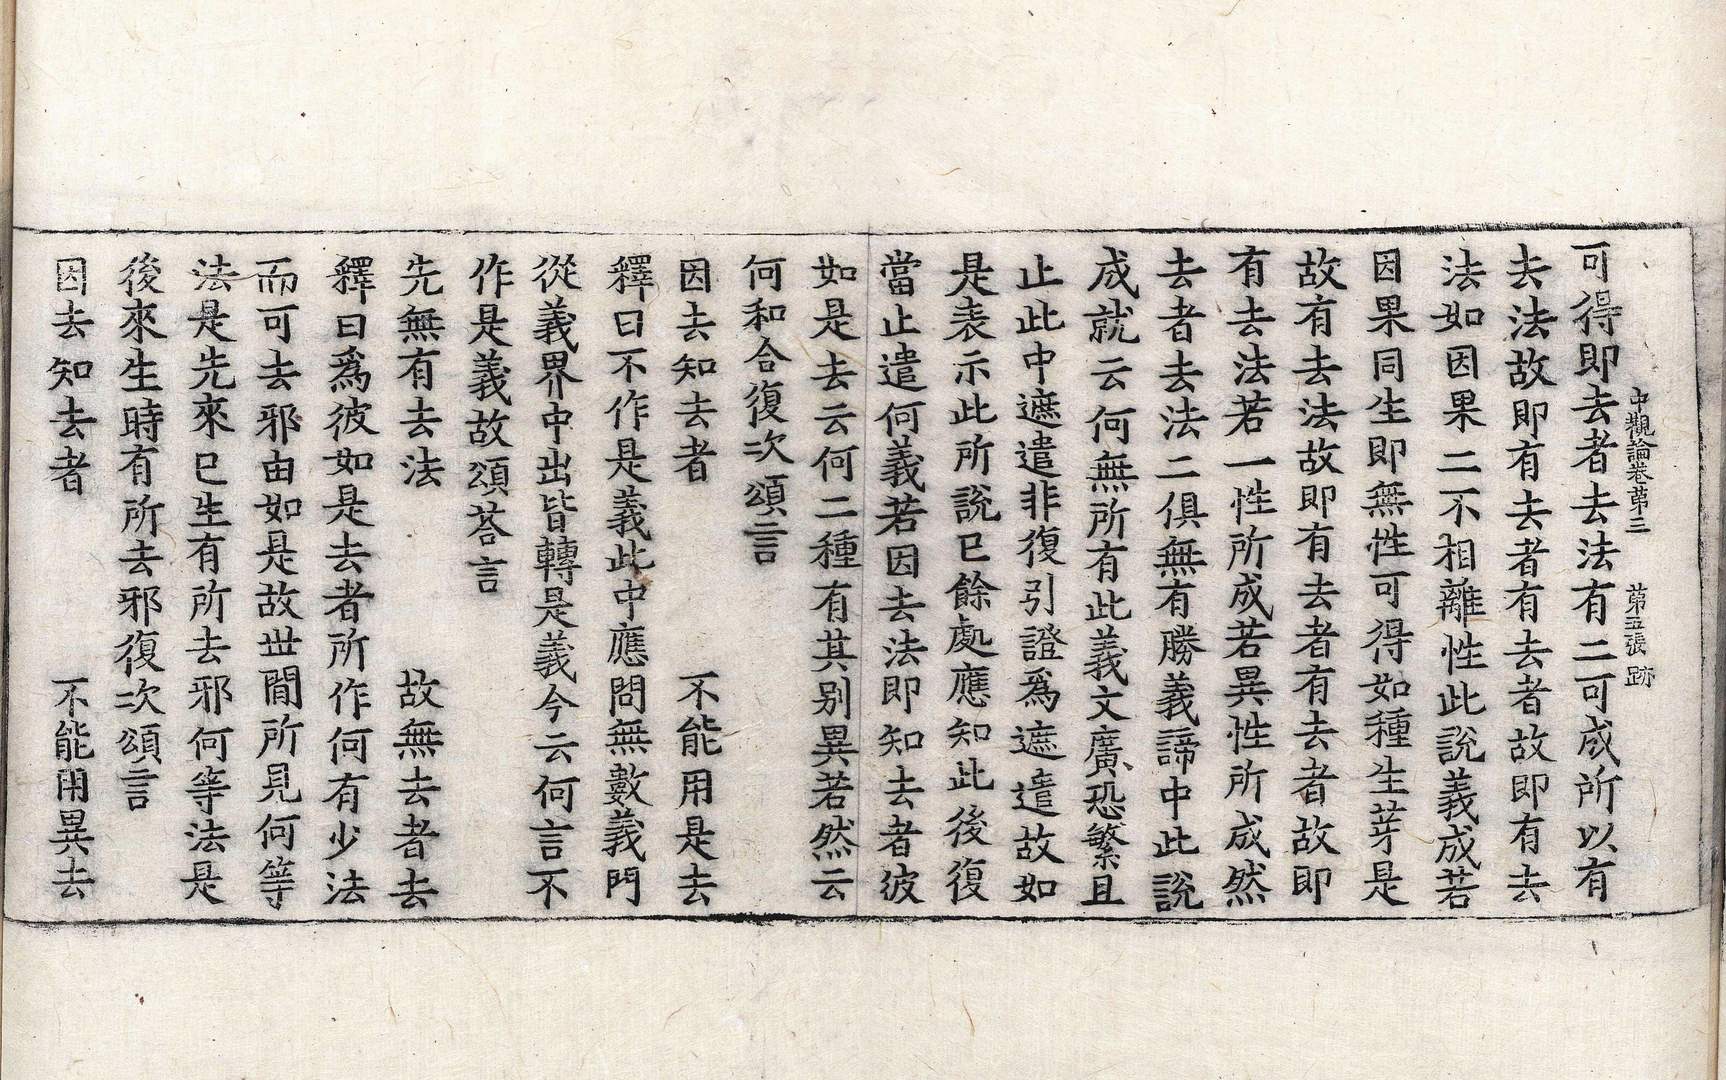 中觀論卷第三　第五張　跡
可得即去者去法有二可成所以有
去法故即有去者有去者故即有去
法如因果二不相離性此說義成若
因果同生即無性可得如種生芽是
故有去法故即有去者有去者故即
有去法若一性所成若異性所成然
去者去法二俱無有勝義諦中此說
成就云何無所有此義文廣恐繁且
止此中遮遣非復引證爲遮遣故如
是表示此所說已餘處應知此後復
當止遣何義若因去法即知去者彼
如是去云何二種有其别異若然云
何和合復次頌言
因去知去者　不能用是去
釋曰不作是義此中應問無數義門
從義界中出皆轉是義今云何言不
作是義故頌荅言
先無有去法　故無去者去
釋曰爲彼如是去者所作何有少法
而可去邪由如是故世間所見何等
法是先來已生有所去邪何等法是
後來生時有所去邪復次頌言
因去知去者　不能用異去